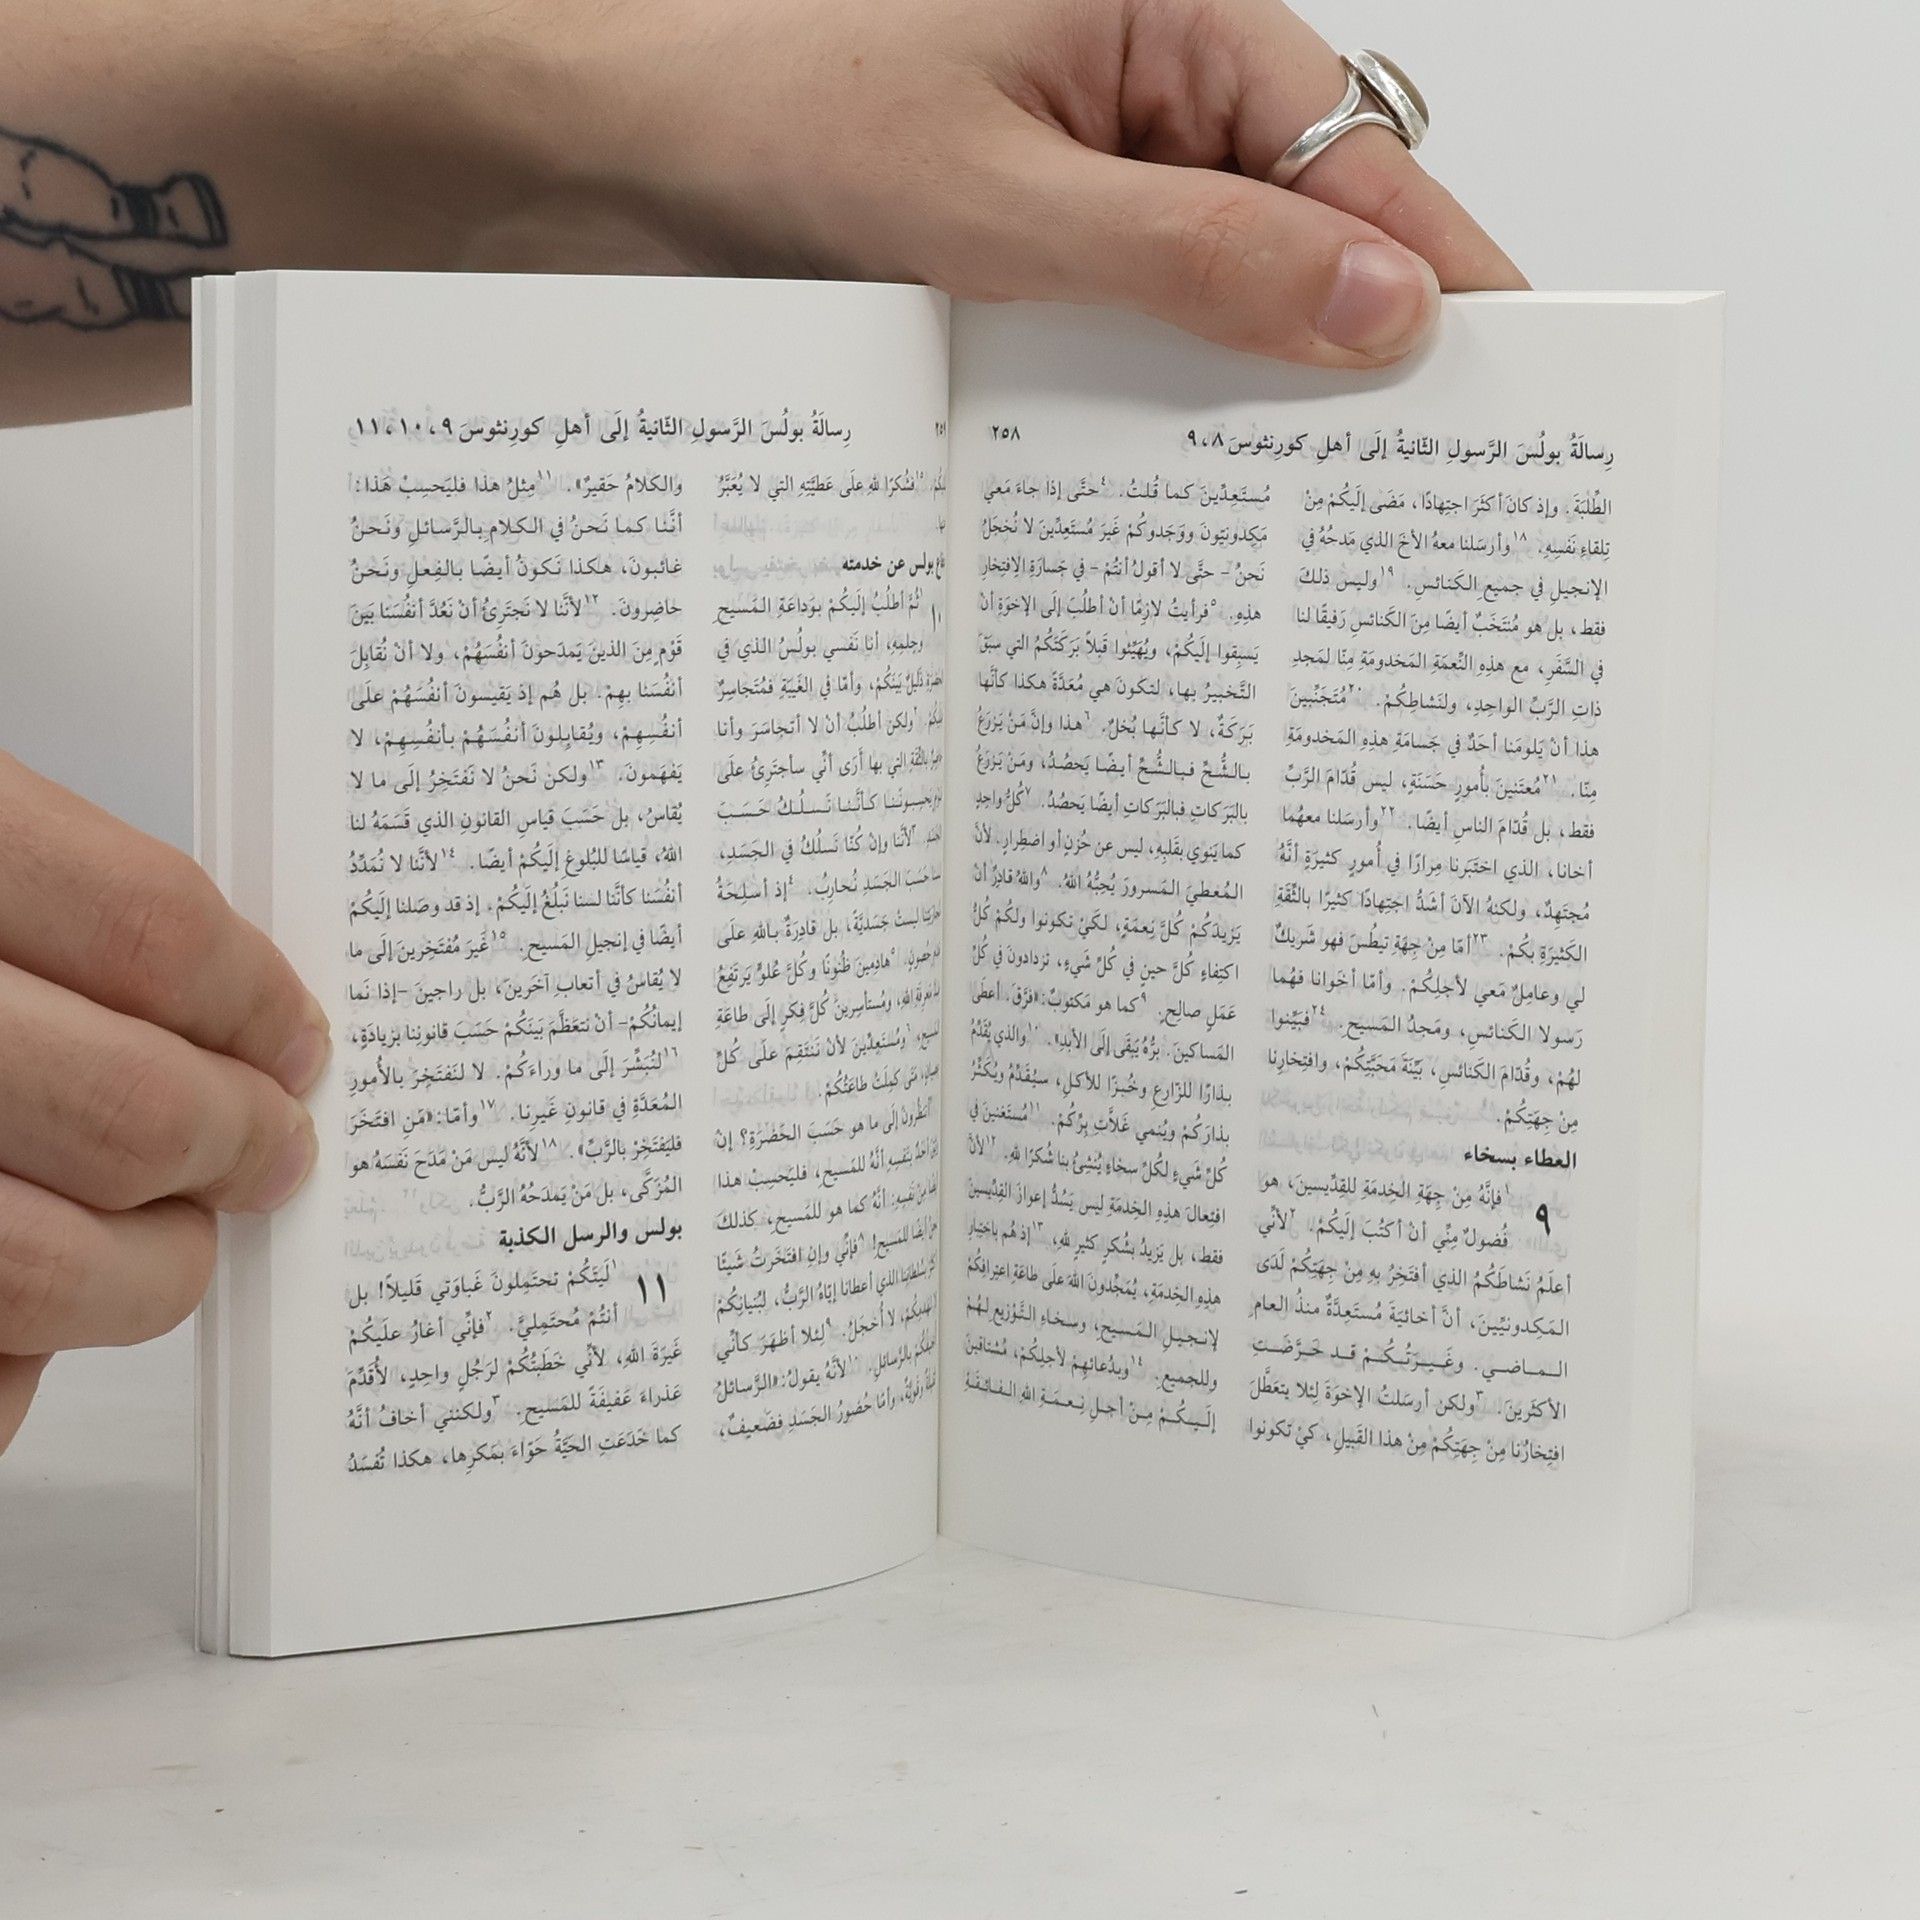 رِسالَةُ بولُسَ الرَّسولِ الثّانيةُ إلَى أهلِ كورِنثوسَ ٨، ٩
٢٥٨
الطِّلبَةَ. وإذ كانَ أكثَرَ اجتِهادًا، مَضَى إلَيكُمْ مِنْ
تِلقاءِ نَفسِهِ. ١٨وأرسَلنا معهُ الأخَ الذي مَدحُهُ في
الإنجيلِ في جميعِ الكَنائسِ. ١٩وليس ذلكَ
فقط، بل هو مُنتَخَبٌ أيضًا مِنَ الكَنائسِ رَفيقًا لنا
في السَّفَرِ، مع هذِهِ النِّعمَةِ المَخدومَةِ مِنّا لمَجدِ
ذاتِ الرَّبِّ الواحِدِ، ولنَشاطِكُمْ. ٢٠مُتَجَنِّبينَ
هذا أنْ يَلومَنا أحَدٌ في جَسامَةِ هذِهِ المَخدومَةِ
مِنّا. ٢١مُعتَنينَ بأُمورٍ حَسَنَةٍ، ليس قُدّامَ الرَّبِّ
فقط، بل قُدّامَ الناسِ أيضًا. ٢٢وأرسَلنا معهُما
أخانا، الذي اختَبَرنا مِرارًا في أُمورٍ كثيرَةٍ أنَّهُ
مُجتَهِدٌ، ولكنهُ الآنَ أشَدُّ اجتِهادًا كثيرًا بالثِّقَةِ
الكَثيرَةِ بكُمْ. ٢٣أمّا مِنْ جِهَةِ تيطُسَ فهو شَريكٌ
لي وعامِلٌ مَعي لأجلِكُمْ. وأمّا أخَوانا فهُما
رَسولا الكَنائسِ، ومَجدُ المَسيحِ. ٢٤فبَيِّنوا
لهُمْ، وقُدّامَ الكَنائسِ، بَيِّنَةَ مَحَبَّتِكُمْ، وافتِخارِنا
مِنْ جِهَتِكُمْ.
العطاء بسخاء
٩ ١فإنَّهُ مِنْ جِهَةِ الخِدمَةِ للقِدِّيسينَ، هو
فُضولٌ مِنِّي أنْ أكتُبَ إلَيكُمْ. ٢لأنِّي
أعلَمُ نَشاطَكُمُ الذي أفتَخِرُ بهِ مِنْ جِهَتِكُمْ لَدَى
المَكِدونيِّينَ، أنَّ أخائيَةَ مُستَعِدَّةٌ منذُ العامِ
الماضي. وغَيرَتُكُمْ قد حَرَّضَتِ
الأكثَرينَ. ٣ولكن أرسَلتُ الإخوَةَ لِئلا يتعَطَّلَ
افتِخارُنا مِنْ جِهَتِكُمْ مِنْ هذا القَبيلِ، كيْ تكونوا
مُستَعِدِّينَ كما قُلتُ. ٤حتَّى إذا جاءَ مَعي
مَكِدونيّونَ ووَجَدوكُمْ غَيرَ مُستَعِدِّينَ لا نُخجَلُ
نَحنُ - حتَّى لا أقولُ أنتُمْ - في جَسارَةِ الِافتِخارِ
هذِهِ. ٥فرأيتُ لازِمًا أنْ أطلُبَ إلَى الإخوَةِ أنْ
يَسبِقوا إلَيكُمْ، ويُهَيِّئوا قَبلاً بَرَكَتَكُمُ التي سبَقَ
التَّخبيرُ بها، لتَكونَ هي مُعَدَّةً هكذا كأنَّها
بَرَكَةٌ، لا كأنَّها بُخلٌ. ٦هذا وإنَّ مَنْ يَزرَعُ
بالشُّحِّ فبالشُّحِّ أيضًا يَحصُدُ، ومَنْ يَزرَعُ
بالبَرَكاتِ فبالبَرَكاتِ أيضًا يَحصُدُ. ٧كُلُّ واحِدٍ
كما يَنوي بقَلبِهِ، ليس عن حُزنٍ أو اضطِرارٍ. لأنَّ
المُعطيَ المَسرورَ يُحِبُّهُ اللهُ. ٨واللهُ قادِرٌ أنْ
يَزيدَكُمْ كُلَّ نِعمَةٍ، لكَيْ تكونوا ولكُمْ كُلُّ
اكتِفاءٍ كُلَّ حينٍ في كُلِّ شَيءٍ، تزدادونَ في كُلِّ
عَمَلٍ صالِحٍ. ٩كما هو مَكتوبٌ: «فرَّقَ. أعطَى
المَساكينَ. برُّهُ يَبقَى إلَى الأبدِ». ١٠والذي يُقَدِّمُ
بذارًا للزّارِعِ وخُبزًا للأكلِ، سيُقَدِّمُ ويُكَثِّرُ
بذارَكُمْ ويُنمي غَلاَّتِ بِرِّكُمْ. ١١مُستَغنينَ في
كُلِّ شَيءٍ لكُلِّ سخاءٍ يُنشِئُ بنا شُكرًا للهِ. ١٢لأنَّ
افتِعالَ هذِهِ الخِدمَةِ ليس يَسُدُّ إعوازَ القِدِّيسينَ
فقط، بل يَزيدُ بشُكرٍ كثيرٍ للهِ، ١٣إذ هُم باختِبارِ
هذِهِ الخِدمَةِ، يُمَجِّدونَ اللهَ علَى طاعَةِ اعتِرافِكُمْ
لإنجيلِ المَسيحِ، وسخاءِ التَّوزيعِ لهُمْ
وللجميعِ. ١٤وبدُعائهِمْ لأجلِكُمْ، مُشتاقينَ
إلَيكُمْ مِنْ أجلِ نِعمَةِ اللهِ الفائقَةِ
رِسالَةُ بولُسَ الرَّسولِ الثّانيةُ إلَى أهلِ كورِنثوسَ ٩، ١٠، ١١
١٥فشُكرًا للهِ علَى عَطيَّتِهِ التي لا يُعَبَّرُ
بولس عن خدمته
١٠ ١ثُمَّ أطلُبُ إلَيكُمْ بوَداعَةِ المَسيحِ
وحِلمِهِ، أنا نَفسي بولُسُ الذي في
ذَليلٌ بَينَكُمْ، وأمّا في الغَيبَةِ فمُتَجاسِرٌ
٢ولكن أطلُبُ أنْ لا أتجاسَرَ وأنا
بالثِّقَةِ التي بها أرَى أنِّي سأجتَرِئُ علَى
يَحسِبونَنا كأنَّنا نَسلُكُ حَسَبَ
٣لأنَّنا وإنْ كُنّا نَسلُكُ في الجَسَدِ،
حَسَبَ الجَسَدِ نُحارِبُ. ٤إذ أسلِحَةُ
مُحارَبَتِنا ليستْ جَسَديَّةً، بل قادِرَةٌ باللهِ علَى
حُصونٍ. ٥هادِمينَ ظُنونًا وكُلَّ عُلوٍّ يَرتَفِعُ
مَعرِفَةِ اللهِ، ومُستأسِرينَ كُلَّ فِكرٍ إلَى طاعَةِ
٦ومُستَعِدِّينَ لأنْ نَنتَقِمَ علَى كُلِّ
مَتَى كمِلَتْ طاعَتُكُمْ.
٧أتنظُرونَ إلَى ما هو حَسَبَ الحَضرَةِ؟ إنْ
أحَدٌ بنَفسِهِ أنَّهُ للمَسيحِ، فليَحسِبْ هذا
مِنْ نَفسِهِ: أنَّهُ كما هو للمَسيحِ، كذلكَ
أيضًا للمَسيحِ! ٨فإنِّي وإنِ افتَخَرتُ شَيئًا
بسُلطانِنا الذي أعطانا إيّاهُ الرَّبُّ، لبُنيانِكُمْ
لهَدمِكُمْ، لا أُخجَلُ. ٩لِئلا أظهَرَ كأنِّي
أُخيفُكُمْ بالرَّسائلِ. ١٠لأنَّهُ يقولُ: «الرَّسائلُ
ثَقيلَةٌ وقَويَّةٌ، وأمّا حُضورُ الجَسَدِ فضَعيفٌ،
والكلامُ حَقيرٌ». ١١مِثلُ هذا فليَحسِبْ هَذا:
أنَّنا كما نَحنُ في الكلامِ بالرَّسائلِ ونَحنُ
غائبونَ، هكذا نَكونُ أيضًا بالفِعلِ ونَحنُ
حاضِرونَ. ١٢لأنَّنا لا نَجتَرِئُ أنْ نَعُدَّ أنفُسَنا بَينَ
قَوْمٍ مِنَ الذينَ يَمدَحونَ أنفُسَهُمْ، ولا أنْ نُقابِلَ
أنفُسَنا بهِمْ. بل هُم إذ يَقيسونَ أنفُسَهُمْ علَى
أنفُسِهِمْ، ويُقابِلونَ أنفُسَهُمْ بأنفُسِهِمْ، لا
يَفهَمونَ. ١٣ولكن نَحنُ لا نَفتَخِرُ إلَى ما لا
يُقاسُ، بل حَسَبَ قياسِ القانونِ الذي قَسَمَهُ لنا
اللهُ، قياسًا للبُلوغِ إلَيكُمْ أيضًا. ١٤لأنَّنا لا نُمَدِّدُ
أنفُسَنا كأنَّنا لسنا نَبلُغُ إلَيكُمْ. إذ قد وصَلنا إلَيكُمْ
أيضًا في إنجيلِ المَسيحِ. ١٥غَيرَ مُفتَخِرينَ إلَى ما
لا يُقاسُ في أتعابِ آخَرينَ، بل راجينَ -إذا نَما
إيمانُكُمْ- أنْ نَتعَظَّمَ بَينَكُمْ حَسَبَ قانونِنا بزيادَةٍ،
١٦لنُبَشِّرَ إلَى ما وراءَكُمْ. لا لنَفتَخِرَ بالأُمورِ
المُعَدَّةِ في قانونِ غَيرِنا. ١٧وأمّا: «مَنِ افتَخَرَ
فليَفتَخِرْ بالرَّبِّ». ١٨لأنَّهُ ليس مَنْ مَدَحَ نَفسَهُ هو
المُزَكَّى، بل مَنْ يَمدَحُهُ الرَّبُّ.
بولس والرسل الكذبة
١١ ١لَيتَكُمْ تحتَمِلونَ غَباوَتي قَليلاً! بل
أنتُمْ مُحتَمِليَّ. ٢فإنِّي أغارُ علَيكُمْ
غَيرَةَ اللهِ، لأنِّي خَطَبتُكُمْ لرَجُلٍ واحِدٍ، لأُقَدِّمَ
عَذراءَ عَفيفَةً للمَسيحِ. ٣ولكنني أخافُ أنَّهُ
كما خَدَعَتِ الحَيَّةُ حَوّاءَ بمَكرِها، هكذا تُفسَدُ